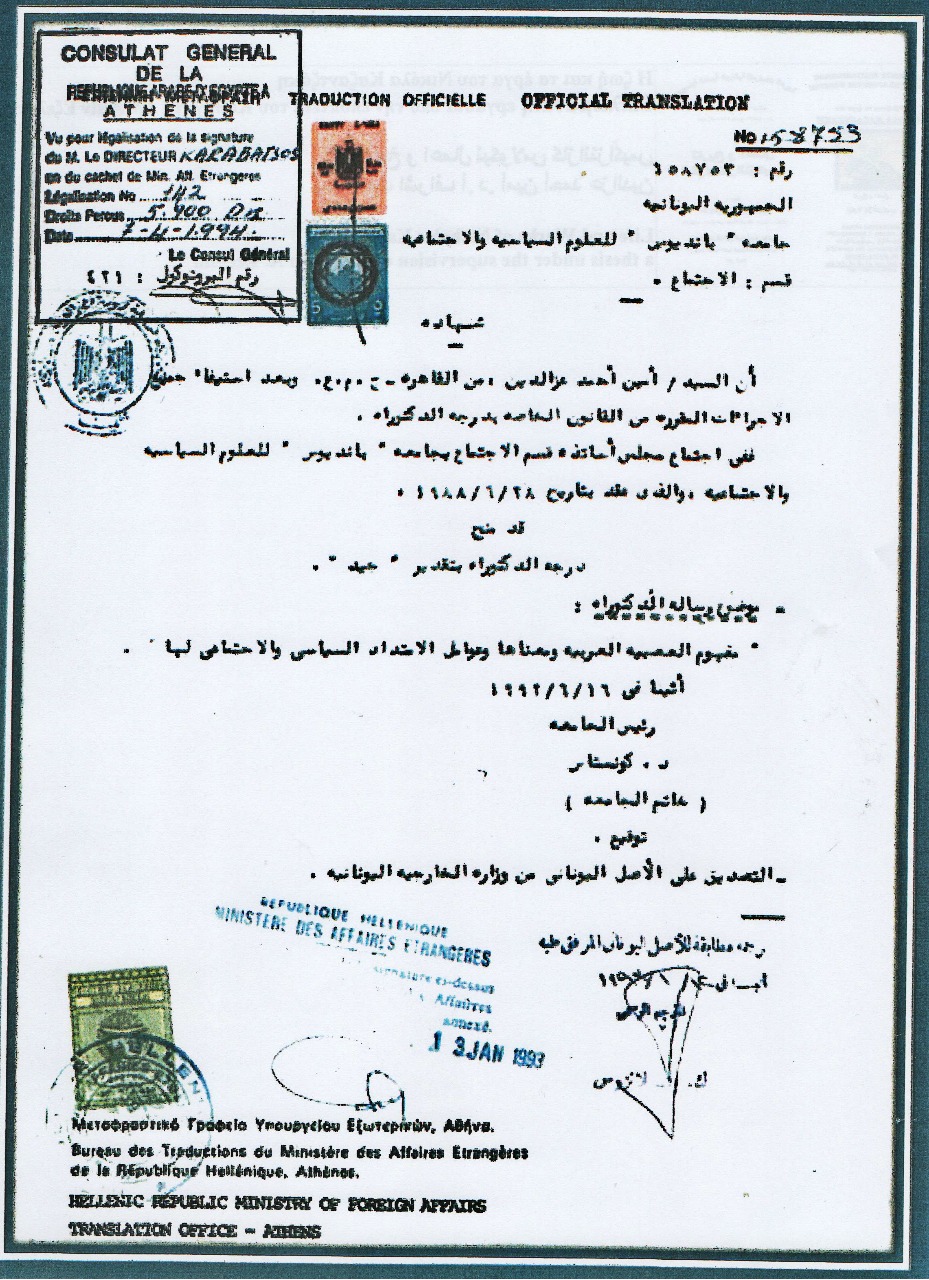 CONSULAT GENERAL
DE LA
REPUBLIQUE ARABE D'EGYPTE A
ATHENES
Vu pour légalisation de la signature
du M. Le DIRECTEUR KARABATSOS
en du cachet de Min. Aff. Etrangeres
Légalisation No 142
Droits Percus 5.900
Date 7-4-1994.
Le Consul Général
رقم البروتوكول : ٤٢١
TRADUCTION OFFICIELLE OFFICIAL TRANSLATION
No 158753
رقم : ١٥٨٧٥٣
الجمهوريه اليونانيه
جامعه " بانديوس " للعلوم السياسيه والاجتماعيه
قسم : الاجتماع .
شهاده
أن السيد / أمين أحمد عزالدين ، من القاهره - ج . م . ع . وبعد استيفاء جميع
الاجراءات المقرره من القانون الخاصه بدرجه الدكتوراه .
ففى اجتماع مجلس أساتذه قسم الاجتماع بجامعه " بانديوس " للعلوم السياسيه
والاجتماعيه ، والذى عقد بتاريخ ١٩٨٨/٦/٢٨ ،
قد منح
درجه الدكتوراه بتقدير " جيد " .
- موضوع رساله الدكتوراه :
" مفهوم العصبيه العربيه ومعناها وعوامل الامتداد السياسى والاجتماعى لها " .
أثينا فى ١٩٩٢/٦/١٦
رئيس الجامعه
د . كونستاس
( خاتم الجامعه )
توقيع .
- التصديق على الأصل اليونانى من وزاره الخارجيه اليونانيه .
REPUBLIQUE HELLENIQUE
MINISTERE DES AFFAIRES ETRANGERES
signature ci-dessus
Affaires
annexé.
1 3 JAN 1993
ترجمه مطابقة للأصل اليونانى المرفق طيه
Μεταφραστικό Γραφείο Υπουργείου Εξωτερικών, Αθήνα.
Bureau des Traductions du Ministère des Affaires Etrangères
de la République Hellénique, Athènes.
HELLENIC REPUBLIC MINISTRY OF FOREIGN AFFAIRS
TRANSLATION OFFICE - ATHENS